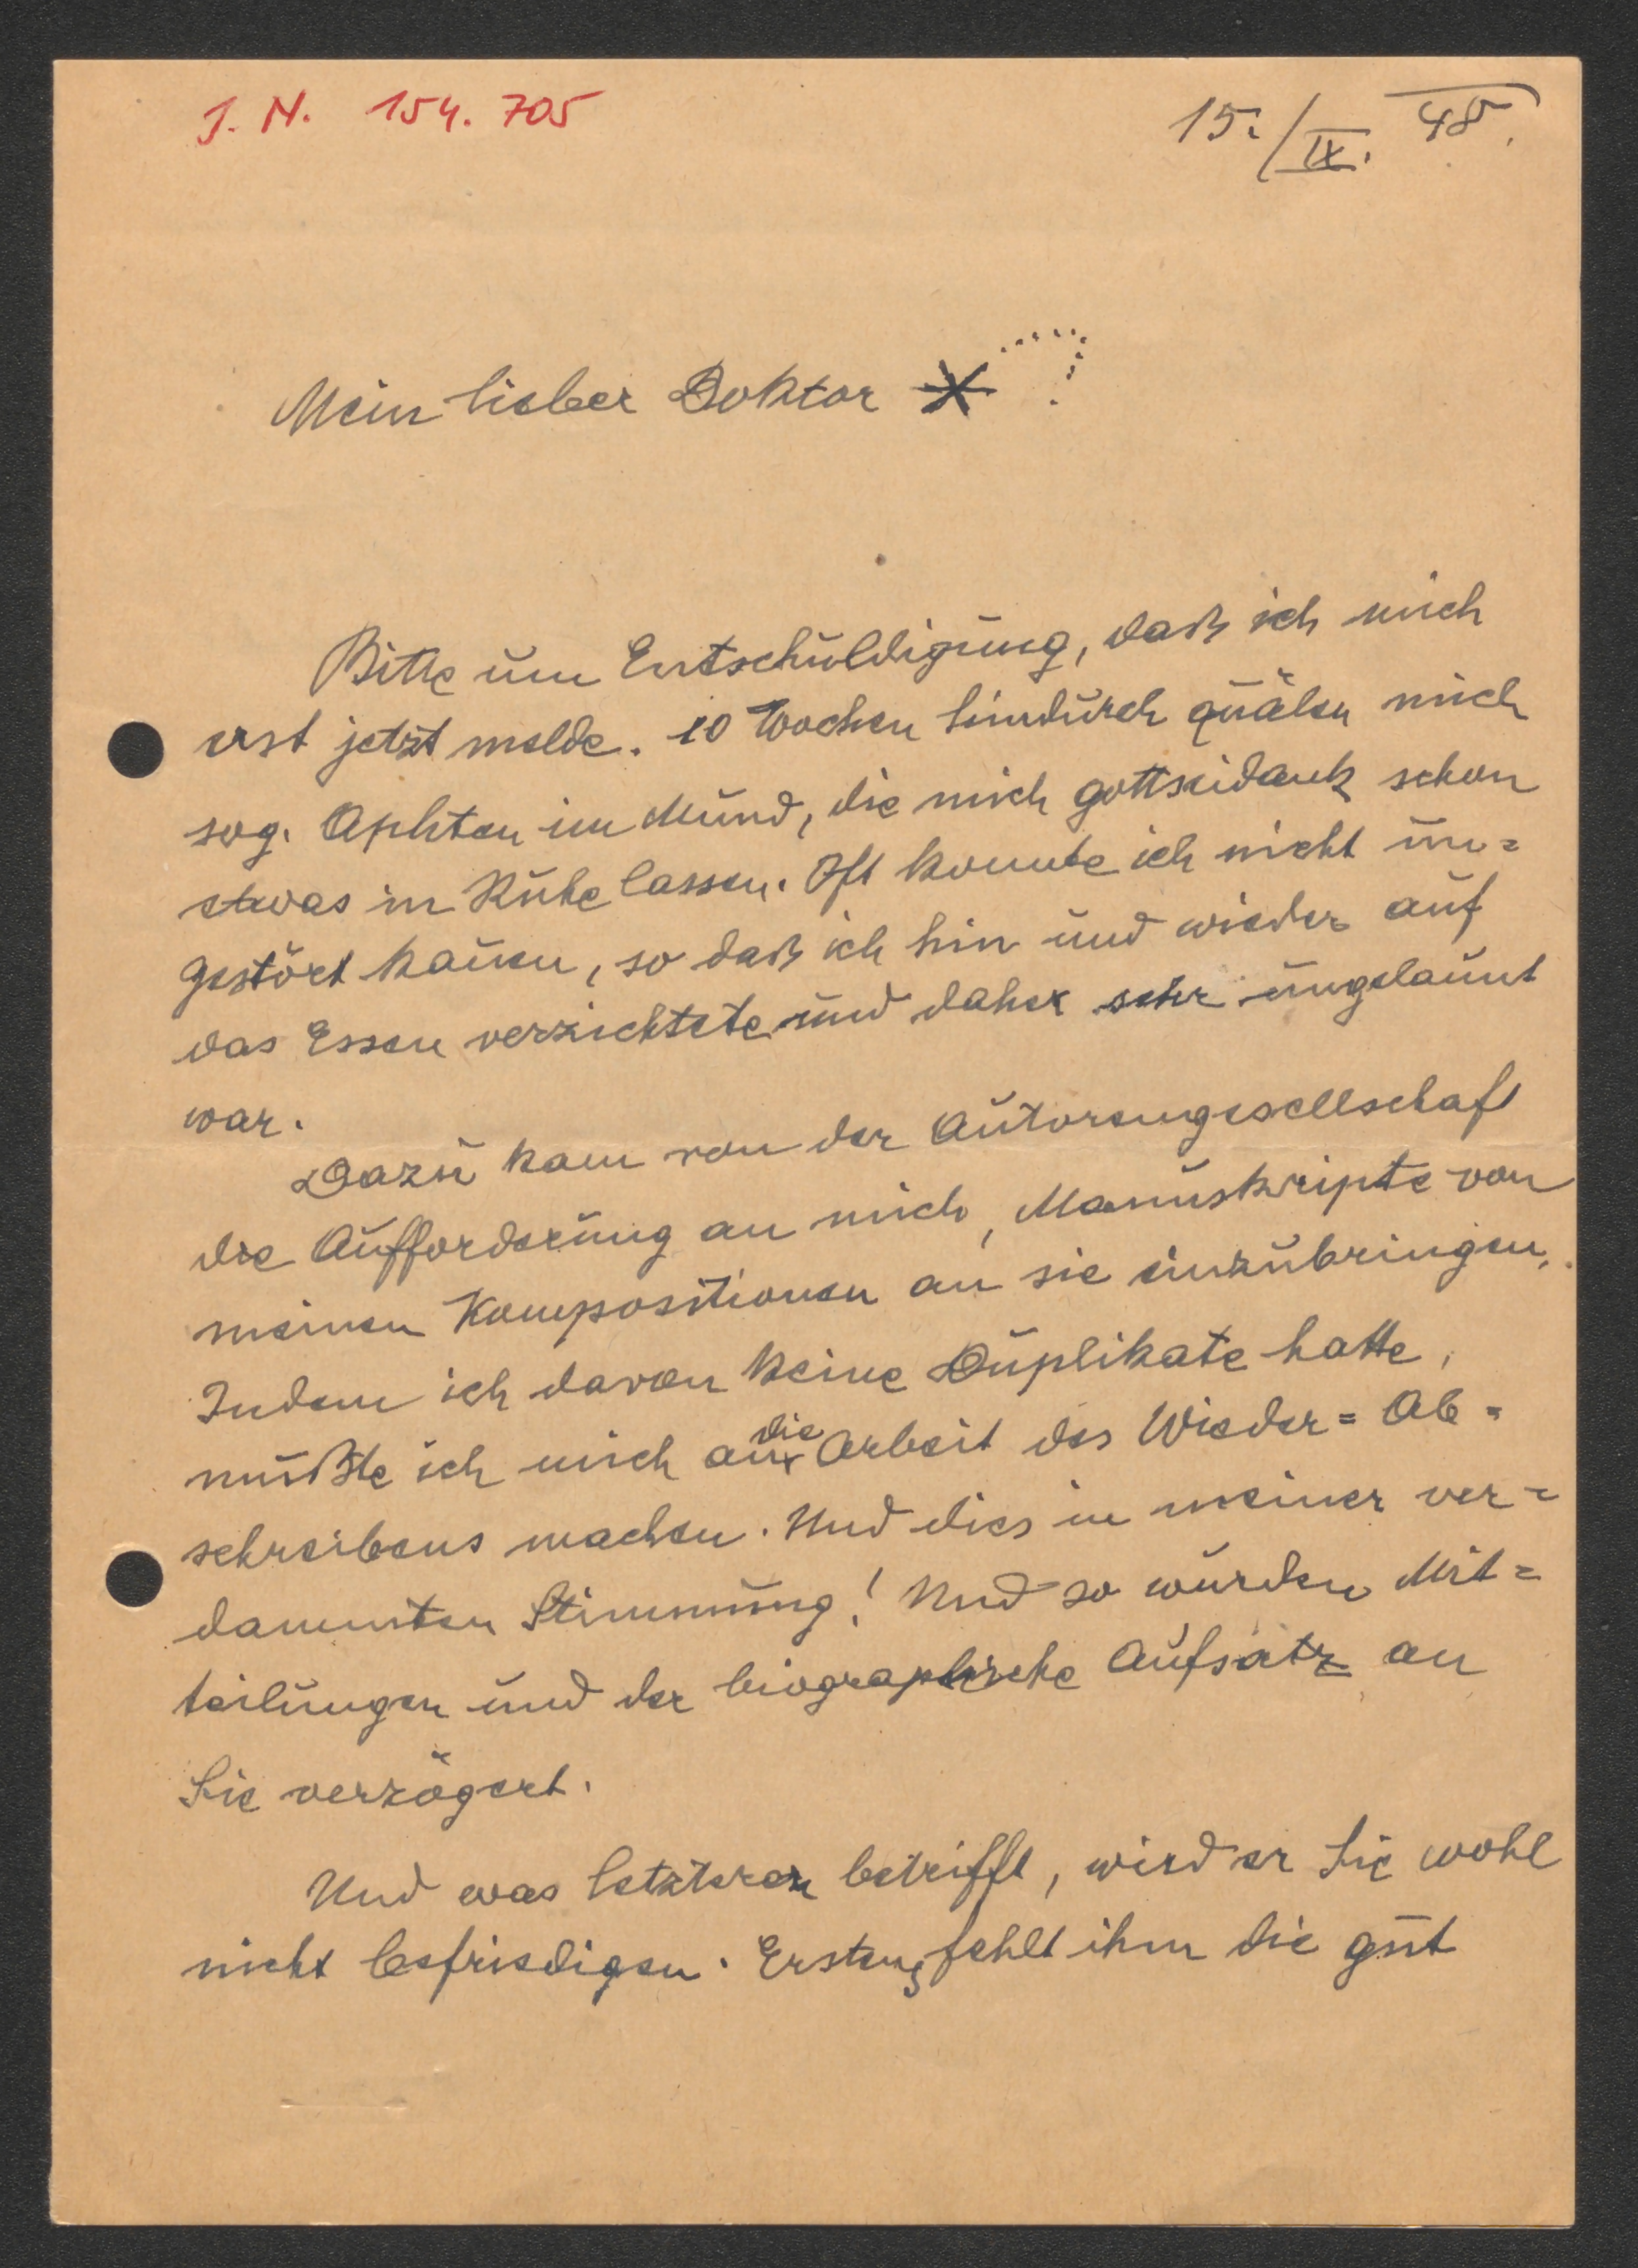 J. N. 154. 705
15./IX. 48.
Mein lieber Doktor
Bitte um Entschuldigung, daß ich mich
erst jetzt melde. 10 Wochen hindurch quälen mich
sog. Aphten im Mund, die mich gottseidank schon
etwas in Ruhe lassen. Oft konnte ich nicht un=
gestört kauen, so daß ich hin und wieder auf
das Essen verzichtete und daher sehr ungelaunt
war.
Dazu kam von der Autorengesellschaft
die Aufforderung an mich, Manuskripte von
meinen Kompositionen an sie einzubringen.
Indem ich davon keine Duplikate hatte,
mußte ich mich an die Arbeit des Wieder=Ab=
schreibens machen. Und dies in meiner ver=
dammten Stimmung! Und so wurden Mit=
teilungen und der biographische Aufsatz an
Sie verzögert.
Und was letzteren betrifft, wird er Sie wohl
nicht befriedigen. Erstens fehlt ihm die gut